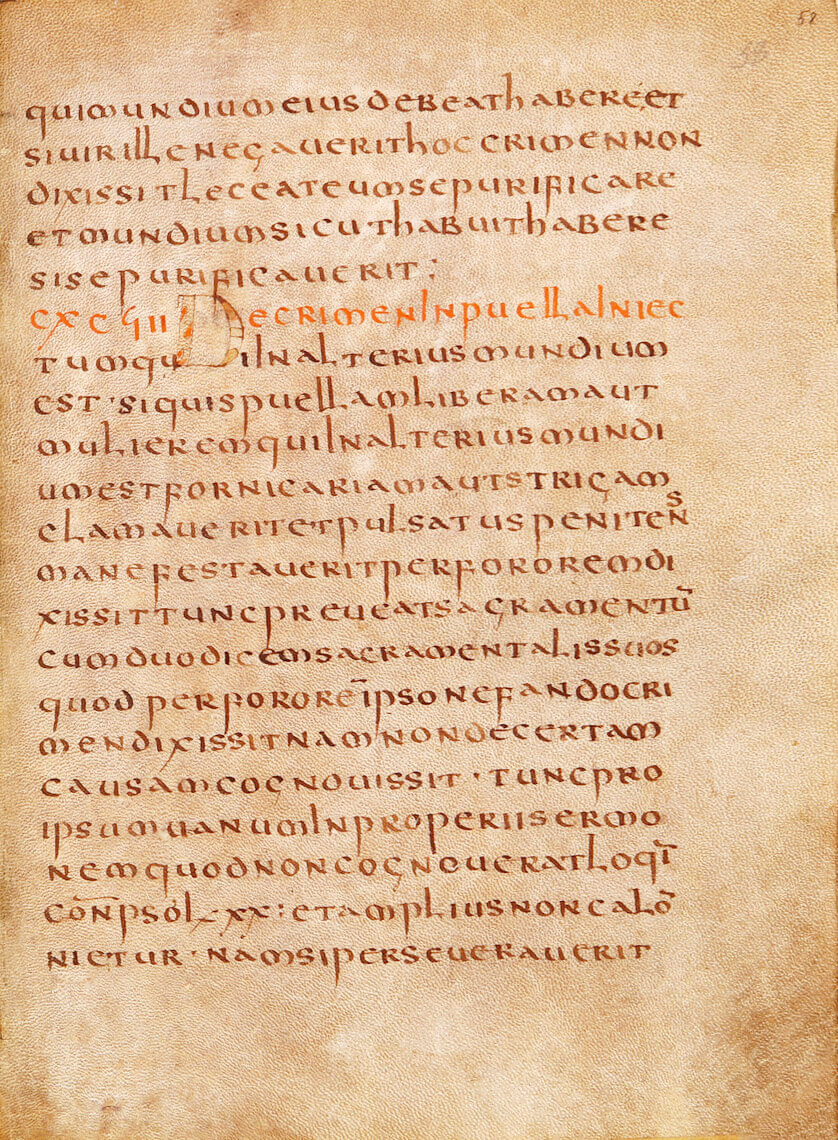 58
53
quimundiumeiusdebeathabereet
siuirilleneg̣auerithoccrimennon
dixissitleceateumsepurificare
etmundiumsicuthabuithabere
sisepurificauerit:
cxcꝗii Decrimeninpuellainiec
tumquiinalteriusmundium
est·siquispuellamliberamaut
mulieremquiinalteriusmundi
umestfornicariamautstrigam
clamaueritetpulsatuspenitens
manefestaueritperfororemdi
xissittuncpreueatsagramentū
cumduodicemsacramentalissuos
quodperfororem̄ipsonefandocri
mendixissitnamnondecertam
causamcognouissit·tuncpro
ipsumuanuminproperiisermo
nemquodnoncogneueratloqī
cōnpsol xx:etampliusnoncalō
nietur·namsiperseuerauerit